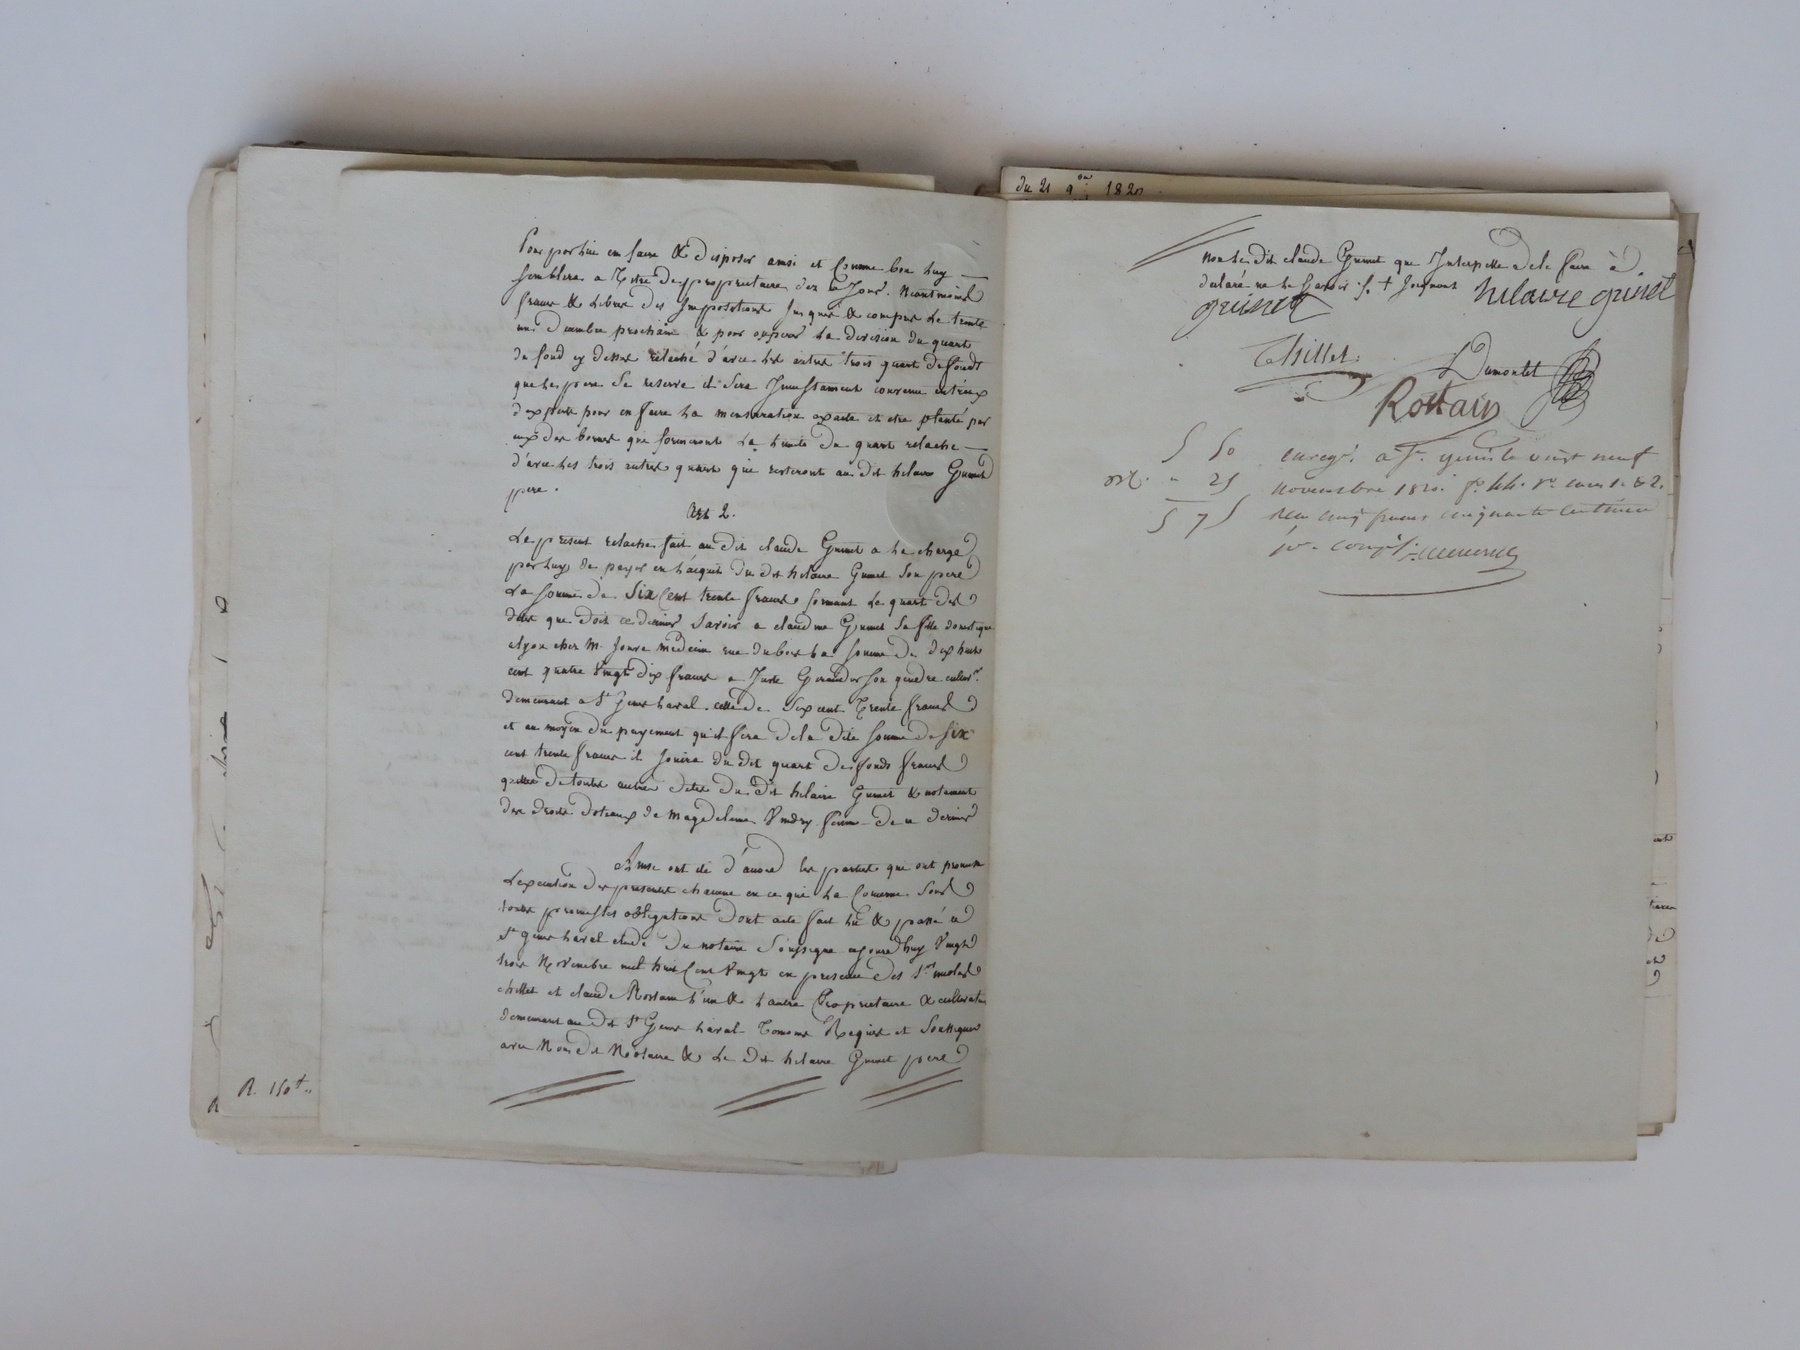 Pour par lui en faire & disposer ainsi et Comme bon luy
semblera a Titre de proprietaire dez ce Jour. Neantmoins
francs & Libres des Impositions Jusques & compris Le trente
un Decembre prochain & pour opperer La division du quart
du fond cy dessus relaché d'avec Les autres trois quart de fonds
que le pere Se reserve il Sera Incessament convenu entreux
d'experts pour en faire La mensuration exacte et etre planté par
eux des bornes qui formeront La limite du quart relaché
d'avec Les trois autres quart qui resteront au dit hilaire Grinet
pere.
Art 2.
Le present relache fait au dit claude Grinet a La charge
par luy de payer en L'acquit du dit hilaire Grinet Son pere
La Somme de Six Cent trente francs formant Le quart des
dettes que doit ce dernier Savoir a claudine Grinet Sa fille domestique
a lyon chez M. Jouve medecin rue dubois La Somme de dix huit
cent quatre Vingt dix francs a Juste Giraud Son gendre cultiv.r
demeurant a St Genis Laval celle de Six cent Trente francs
et au moyen du payement qu'il fera de la dite Somme de Six
cent trente francs il Jouira du dit quart de fonds francs
quitte de toutes autres dettes du dit hilaire Grinet & notament
des droits dotaux de Magdelaine femme de ce dernier
Ainsi ont été d'accord les parties qui ont promis
L'execution des presentes chacune en ce qui La Concerne Sous
toutes promesses obligations Dont acte fait lu & passé a
St genis Laval etude Du notaire Soussigné aujourdhuy Vingt
trois Novembre mil huit Cent Vingt en presence des Srs nicolas
chillet et claude Rostain L'un & L'autre Proprietaire & cultivateur
demeurant au dit St Genis Laval Temoins Requis et Soussignés
avec Nous dit Notaire & Le dit hilaire Grinet pere
R. 150
du 21 9bre 1820
non Le dit claude Grinet que Interpellé de le faire a
declaré ne Le Savoir Soignons hilaire grinet
grinet
Chillet
Dumontet
Rostain
5 50 enregt. a St. genis le vingt neuf
25 novembre 1820. fo. 44. Vo. cases 1. & 2.
5 75 Recu cinq francs cinquante centimes